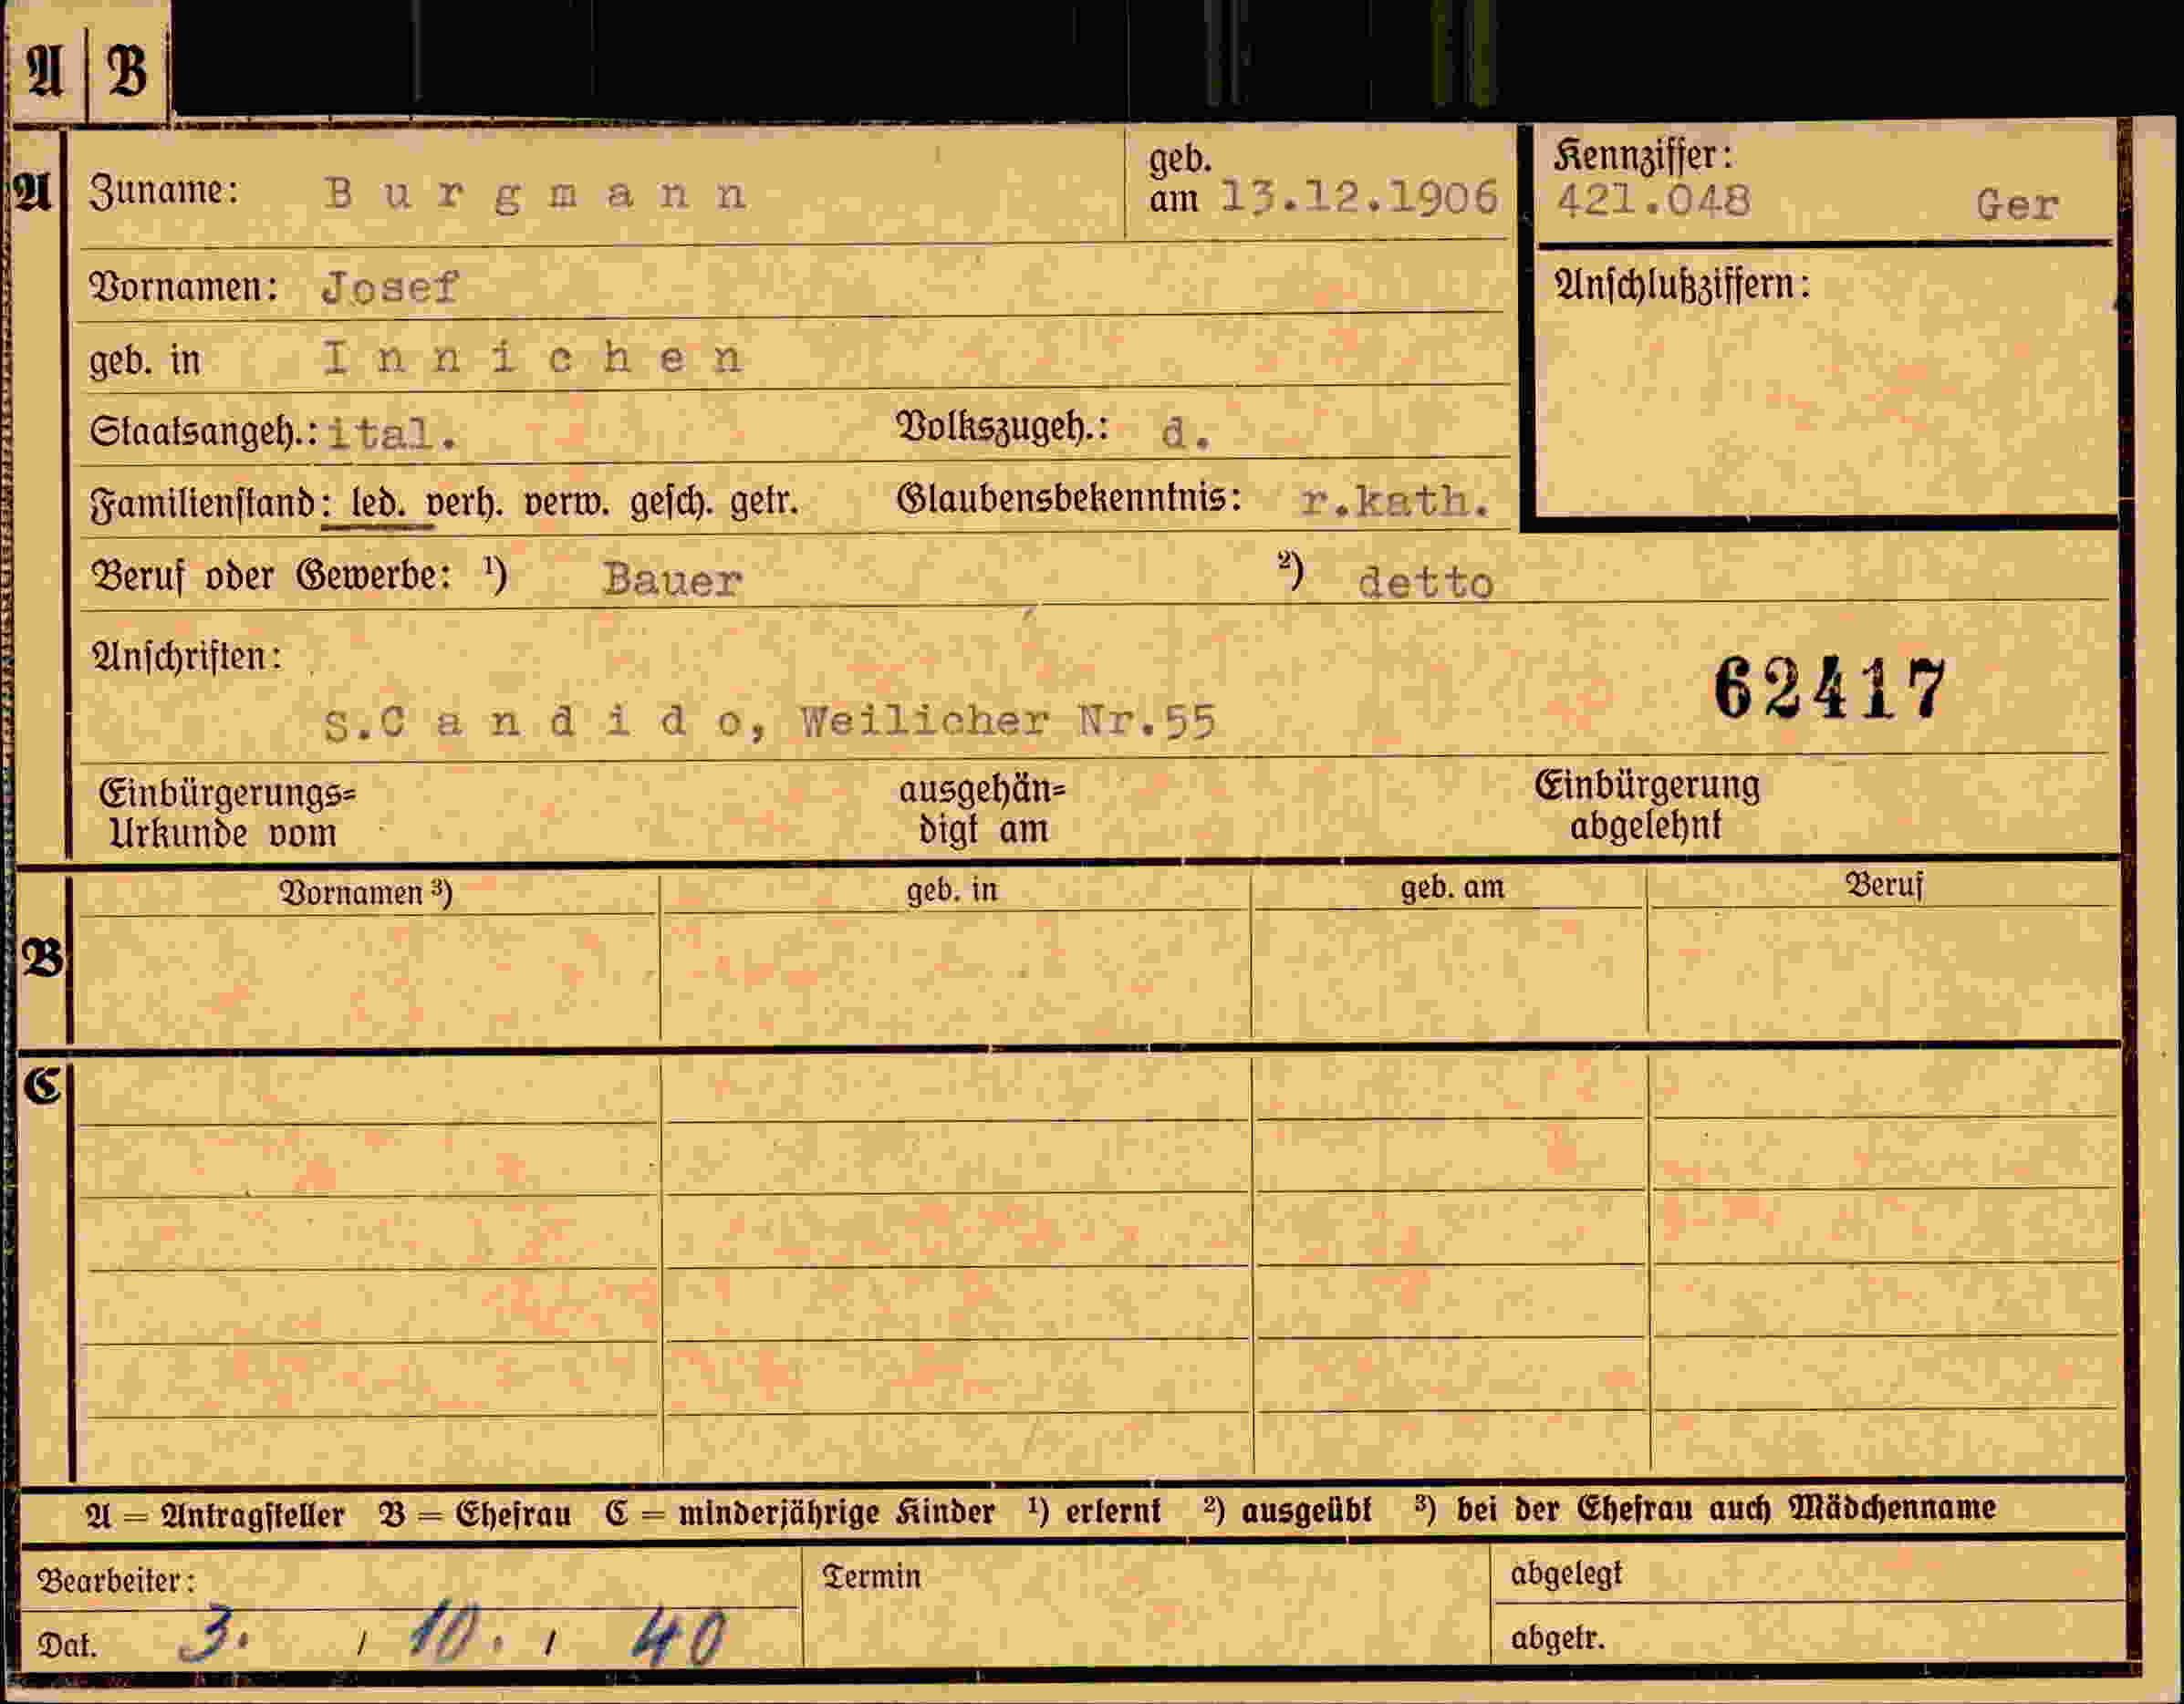 A B
A Zuname: Burgmann geb. am 13.12.1906 Kennziffer: 421.048 Ger
Vornamen: Josef Anschlußziffern:
geb. in Innichen
Staatsangeh.: ital. Volkszugeh.: d.
Familienstand: led. verh. verw. gesch. getr. Glaubensbekenntnis: r.kath.
Beruf oder Gewerbe: ¹) Bauer ²) detto
Anschriften: 62417
S.Candido, Weilicher Nr.55
Einbürgerungs= ausgehän= Einbürgerung
Urkunde vom digt am abgelehnt
Vornamen ³) geb. in geb. am Beruf
B
C
A = Antragsteller B = Ehefrau C = minderjährige Kinder ¹) erlernt ²) ausgeübt ³) bei der Ehefrau auch Mädchenname
Bearbeiter: Termin abgelegt
Dat. 3. / 10. / 40 abgetr.